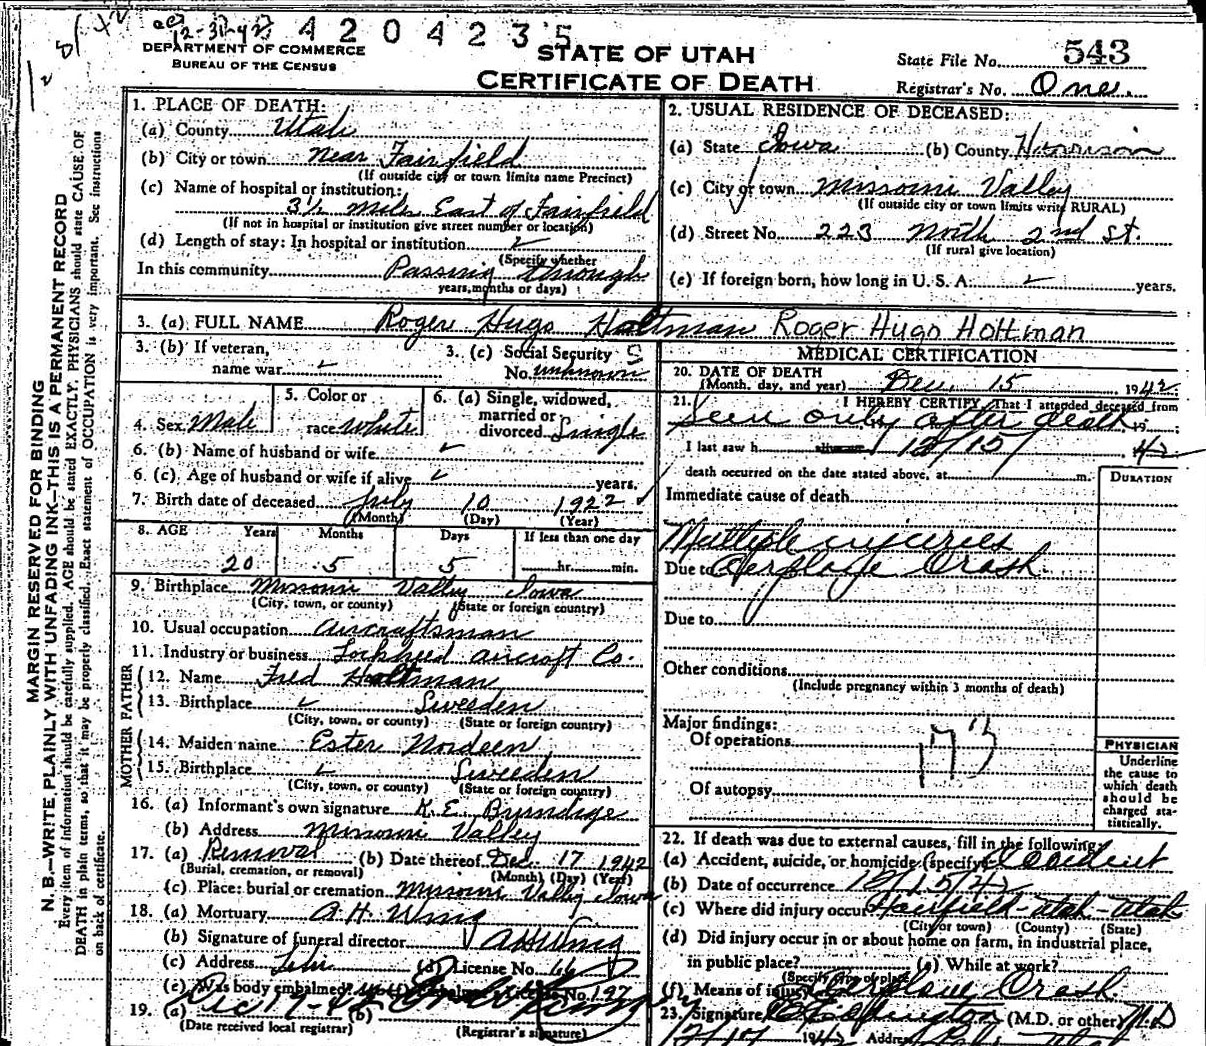 12-31-42 4 2 0 4 2 3 5
DEPARTMENT OF COMMERCE
BUREAU OF THE CENSUS
STATE OF UTAH
CERTIFICATE OF DEATH
State File No. 543
Registrar's No. One.
MARGIN RESERVED FOR BINDING
N. B.—WRITE PLAINLY WITH UNFADING INK—THIS IS A PERMANENT RECORD
Every item of information should be carefully supplied. AGE should be stated EXACTLY. PHYSICIANS should state CAUSE OF
DEATH in plain terms, so that it may be properly classified. Exact statement of OCCUPATION is very important. See instructions
on back of certificate.
1. PLACE OF DEATH:
(a) County Utah
(b) City or town near Fairfield
(If outside city or town limits name Precinct)
(c) Name of hospital or institution:
3½ Mile East of Fairfield
(If not in hospital or institution give street number or location)
(d) Length of stay: In hospital or institution
(Specify whether
In this community Passing through
years, months or days)
2. USUAL RESIDENCE OF DECEASED:
(a) State Iowa (b) County Harrison
(c) City or town Missouri Valley
(If outside city or town limits write RURAL)
(d) Street No. 223 North 2nd St.
(If rural give location)
(e) If foreign born, how long in U. S. A. years.
3. (a) FULL NAME Roger Hugo Holtman Roger Hugo Holtman
3. (b) If veteran,
name war
3. (c) Social Security
No. unknown
4. Sex Male
5. Color or
race white
6. (a) Single, widowed,
married or
divorced Single
6. (b) Name of husband or wife
6. (c) Age of husband or wife if alive years.
7. Birth date of deceased July 10 1922
(Month) (Day) (Year)
8. AGE Years Months Days If less than one day
20 5 5 hr. min.
9. Birthplace Missouri Valley Iowa
(City, town, or county) (State or foreign country)
10. Usual occupation aircraftsman
11. Industry or business Lockheed aircraft Co.
FATHER
12. Name Fred Holtman
13. Birthplace Sweeden
(City, town, or county) (State or foreign country)
MOTHER
14. Maiden name Ester Nordeen
15. Birthplace Sweeden
(City, town, or county) (State or foreign country)
16. (a) Informant's own signature K. E. Brundige
(b) Address Missouri Valley
17. (a) Removal (b) Date thereof Dec. 17 1942
(Burial, cremation, or removal) (Month) (Day) (Year)
(c) Place: burial or cremation Missouri Valley Iowa
18. (a) Mortuary A. H. Wing
(b) Signature of funeral director A H Wing
(c) Address Lehi (d) License No. 66
(e) Was body embalmed? License No. 197
19. (a) Dec 17-42 (b)
(Date received local registrar) (Registrar's signature)
MEDICAL CERTIFICATION
20. DATE OF DEATH
(Month, day, and year) Dec. 15 1942
21. I HEREBY CERTIFY, That I attended deceased from
Seen only after death 19
I last saw h 12/15 42
death occurred on the date stated above, at m.
DURATION
Immediate cause of death
Multiple injuries
Due to Aerplane Crash
Due to
Other conditions
(Include pregnancy within 3 months of death)
Major findings:
Of operations 173
Of autopsy
PHYSICIAN
Underline
the cause to
which death
should be
charged sta-
tistically.
22. If death was due to external causes, fill in the following:
(a) Accident, suicide, or homicide (specify) Accident
(b) Date of occurrence 12/15/42
(c) Where did injury occur Fairfield-Utah-Utah
(City or town) (County) (State)
(d) Did injury occur in or about home on farm, in industrial place,
in public place? (e) While at work?
(Specify type of place)
(f) Means of injury Aerplane Crash.
23. Signature (M.D. or other) M.D
12/17 1942 Address